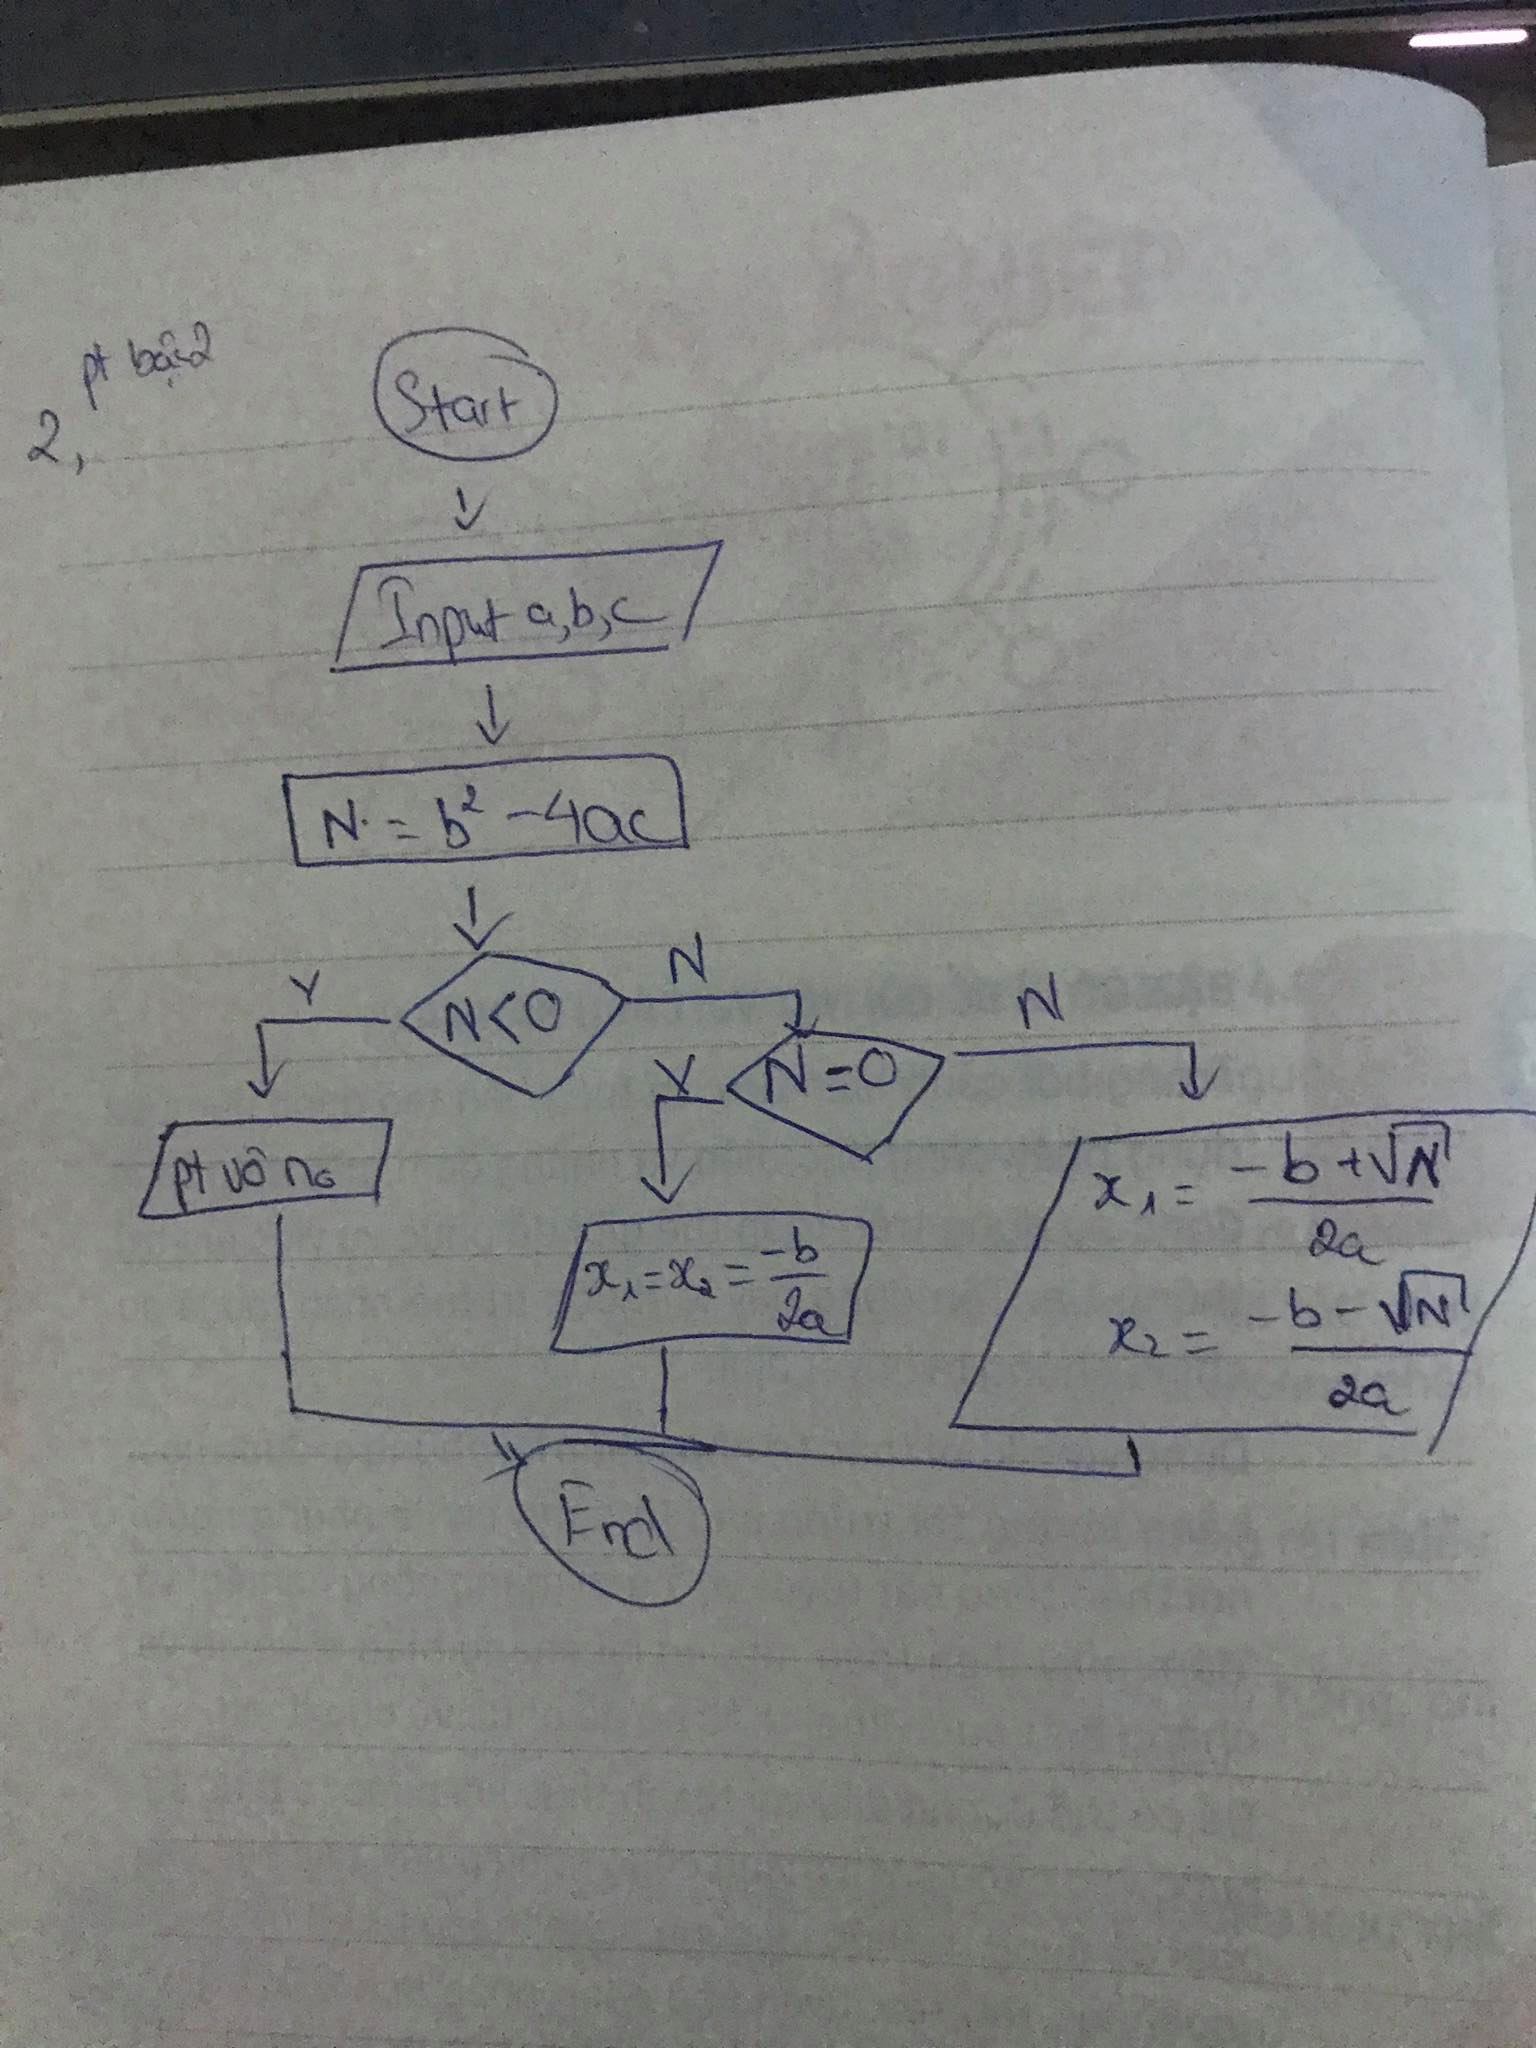 pt bậc 2
2,
Start
Input a,b,c
N = b² - 4ac
Y
N<0
N
Y
N=0
N
pt vô no
x₁=x₂= -b/2a
x₁ = (-b+√N)/2a
x₂ = (-b-√N)/2a
End